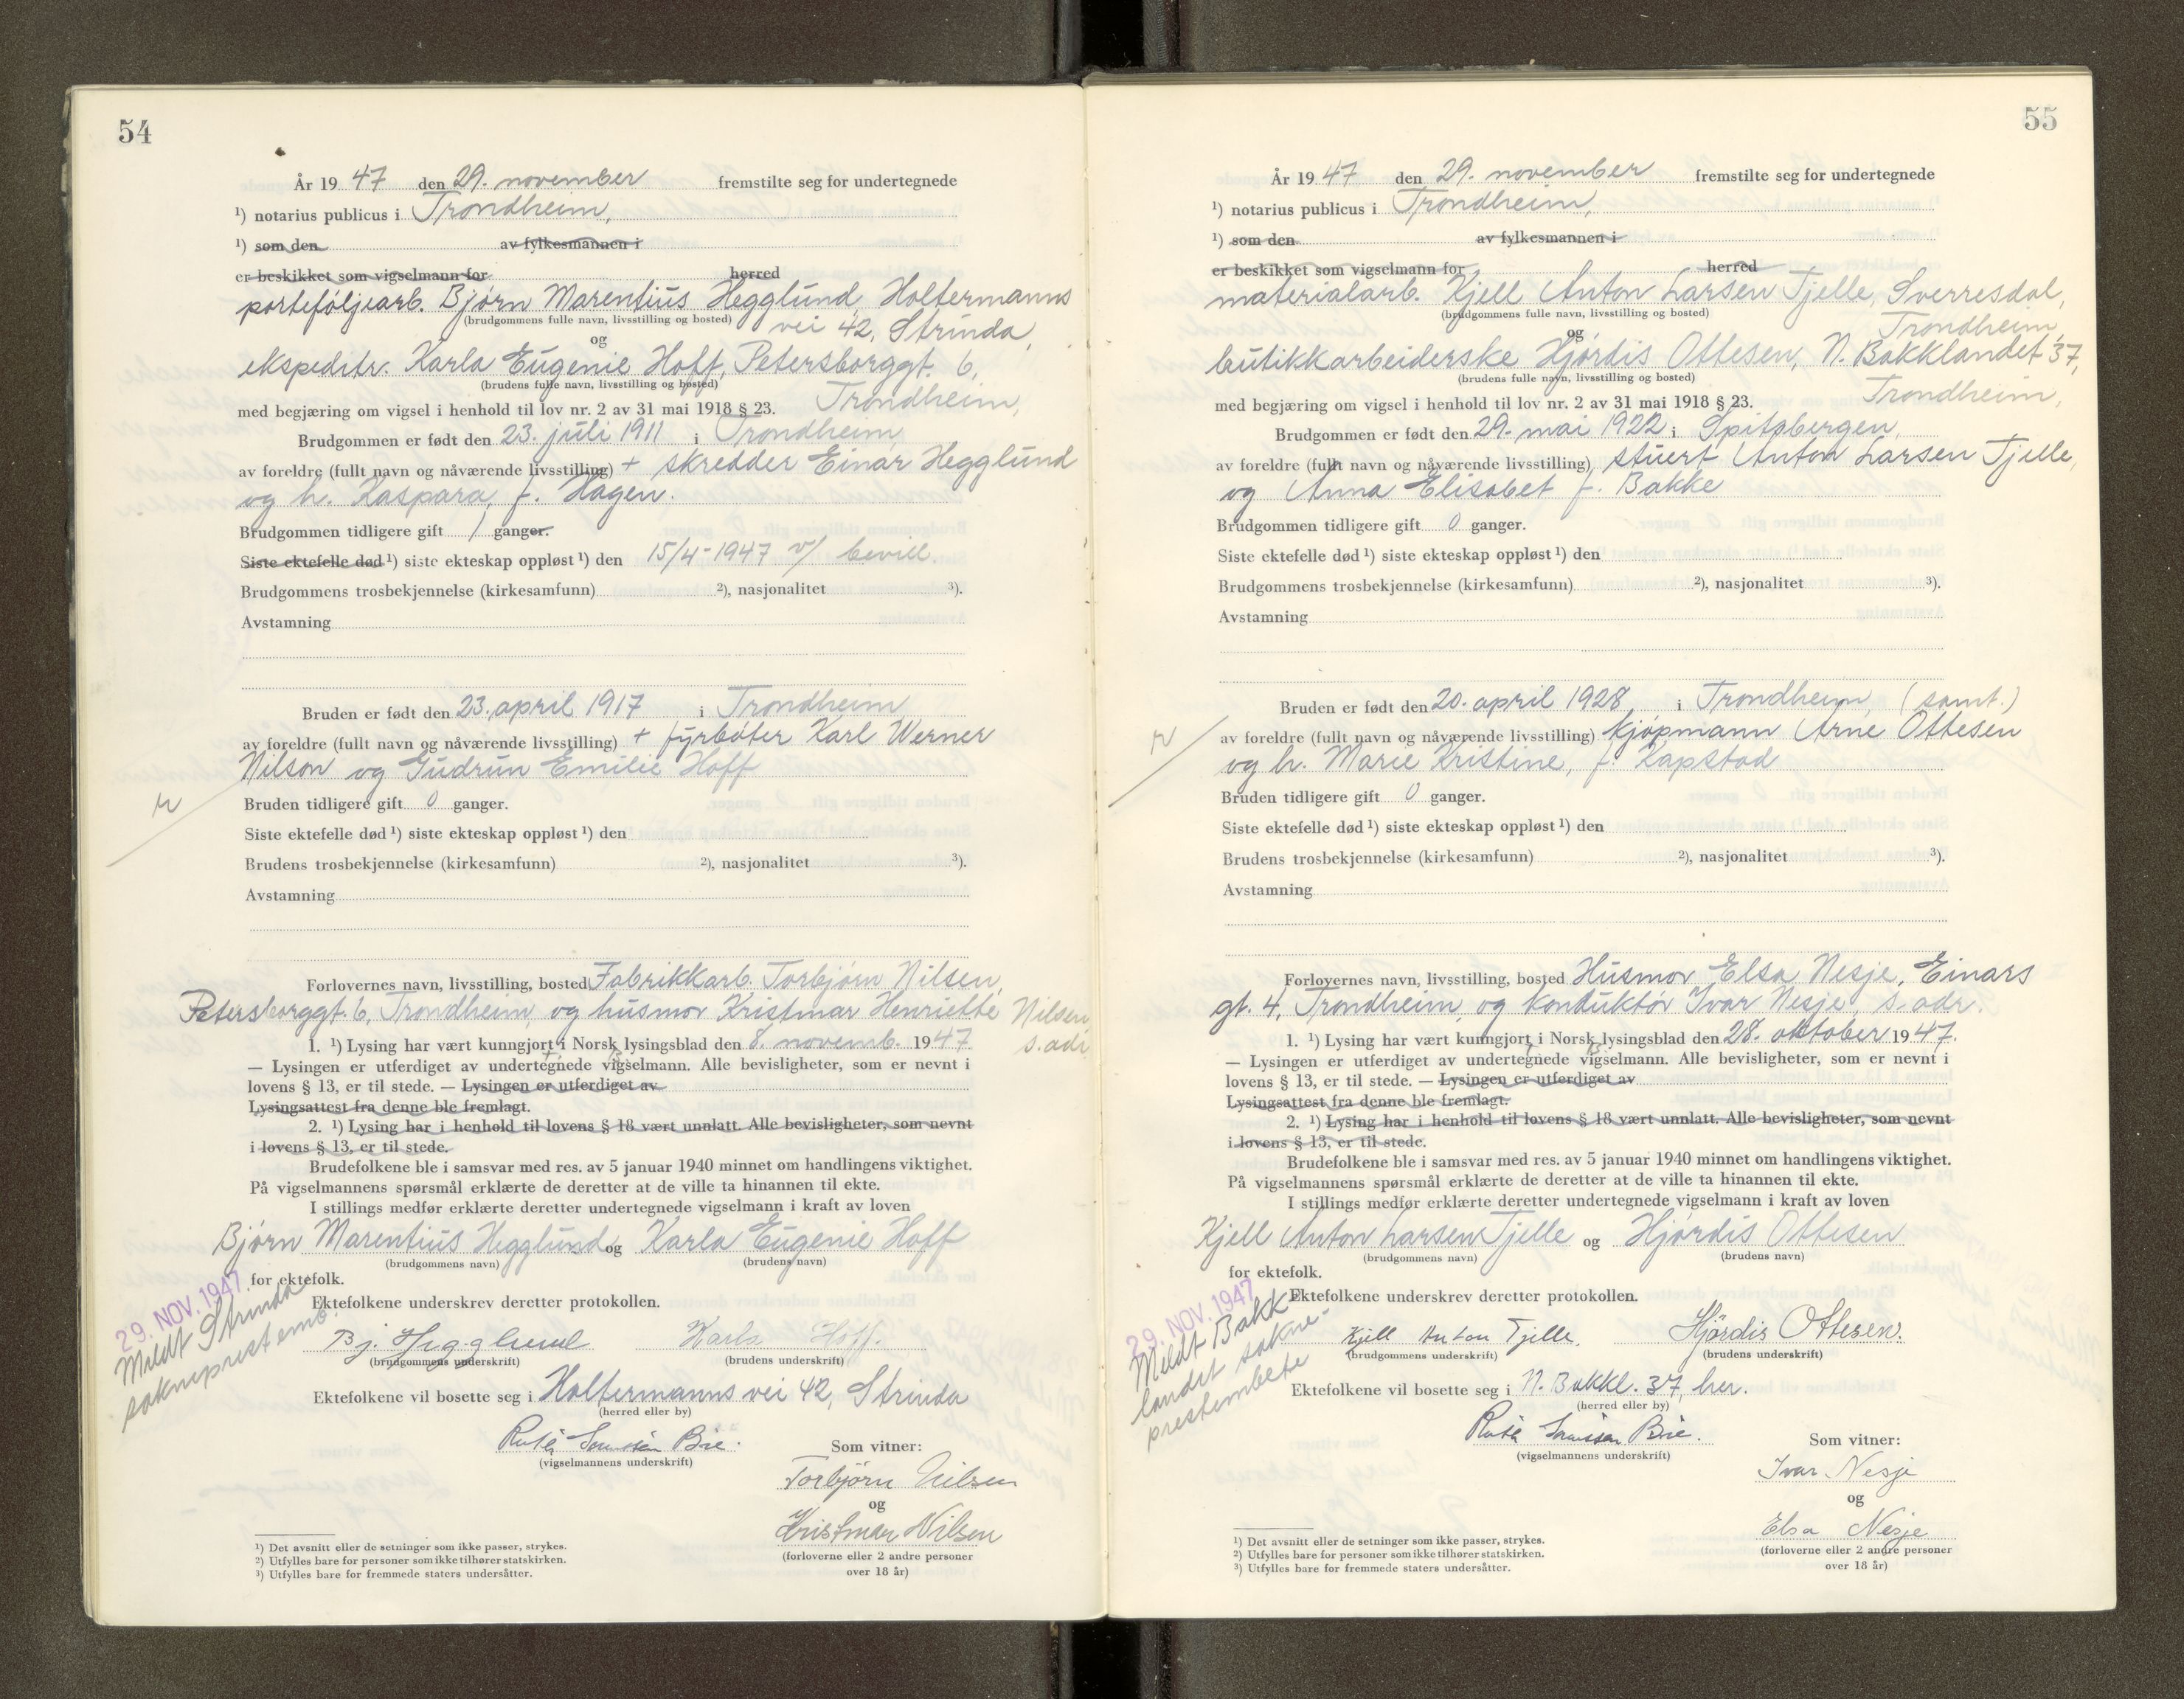 54
År 19 47 den 29. november fremstilte seg for undertegnede
¹) notarius publicus i Trondheim,
¹) som den av fylkesmannen i
er beskikket som vigselmann for herred
porteføljearb. Bjørn Marentius Hegglund, Holtermanns
(brudgommens fulle navn, livsstilling og bosted) vei 42, Strinda,
og
ekspeditr. Karla Eugenie Hoff, Petersborggt. 6,
(brudens fulle navn, livsstilling og bosted)
med begjæring om vigsel i henhold til lov nr. 2 av 31 mai 1918 § 23. Trondheim,
Brudgommen er født den 23. juli 1911 i Trondheim
av foreldre (fullt navn og nåværende livsstilling) + skredder Einar Hegglund
og h. Kaspara, f. Hagen.
Brudgommen tidligere gift 1 ganger.
Siste ektefelle død ¹) siste ekteskap oppløst ¹) den 15/4-1947 v/ bevill.
Brudgommens trosbekjennelse (kirkesamfunn) ²), nasjonalitet ³).
Avstamning
Bruden er født den 23. april 1917 i Trondheim
av foreldre (fullt navn og nåværende livsstilling) + fyrbøter Karl Werner
Nilson og Gudrun Emilie Hoff
Bruden tidligere gift 0 ganger.
Siste ektefelle død ¹) siste ekteskap oppløst ¹) den
Brudens trosbekjennelse (kirkesamfunn) ²), nasjonalitet ³).
Avstamning
Forlovernes navn, livsstilling, bosted Fabrikkarb. Torbjørn Nilsen,
Petersborggt. 6, Trondheim, og husmor Kristmar Henriette Nilsen,
s. adr.
1. ¹) Lysing har vært kunngjort i Norsk lysingsblad den 8. novemb. 1947
— Lysingen er utferdiget av undertegnede vigselmann. Alle bevisligheter, som er nevnt i
lovens § 13, er til stede. — Lysingen er utferdiget av
Lysingsattest fra denne ble fremlagt.
2. ¹) Lysing har i henhold til lovens § 18 vært unnlatt. Alle bevisligheter, som nevnt
i lovens § 13, er til stede.
Brudefolkene ble i samsvar med res. av 5 januar 1940 minnet om handlingens viktighet.
På vigselmannens spørsmål erklærte de deretter at de ville ta hinannen til ekte.
I stillings medfør erklærte deretter undertegnede vigselmann i kraft av loven
Bjørn Marentius Hegglund og Karla Eugenie Hoff
(brudgommens navn) (brudens navn)
for ektefolk.
29. NOV. 1947.
Meldt Strinda
sokneprestemb.
Ektefolkene underskrev deretter protokollen.
Bj. Hegglund Karla Hoff.
(brudgommens underskrift) (brudens underskrift)
Ektefolkene vil bosette seg i Holtermanns vei 42, Strinda
(herred eller by)
(vigselmannens underskrift)
Som vitner:
Torbjørn Nilsen
og
Kristmar Nilsen
(forloverne eller 2 andre personer
over 18 år)
¹) Det avsnitt eller de setninger som ikke passer, strykes.
²) Utfylles bare for personer som ikke tilhører statskirken.
³) Utfylles bare for fremmede staters undersåtter.
55
År 19 47 den 29. november fremstilte seg for undertegnede
¹) notarius publicus i Trondheim,
¹) som den av fylkesmannen i
er beskikket som vigselmann for herred
materialarb. Kjell Anton Larsen Tjelle, Sverresdal,
(brudgommens fulle navn, livsstilling og bosted) Trondheim,
og
butikkarbeiderske Hjørdis Ottesen, N. Bakklandet 37,
(brudens fulle navn, livsstilling og bosted)
med begjæring om vigsel i henhold til lov nr. 2 av 31 mai 1918 § 23. Trondheim,
Brudgommen er født den 29. mai 1922 i Spitsbergen,
av foreldre (fullt navn og nåværende livsstilling) stuert Anton Larsen Tjelle,
og Anna Elisabet f. Bakke
Brudgommen tidligere gift 0 ganger.
Siste ektefelle død ¹) siste ekteskap oppløst ¹) den
Brudgommens trosbekjennelse (kirkesamfunn) ²), nasjonalitet ³).
Avstamning
Bruden er født den 20. april 1928 i Trondheim, (samt.)
av foreldre (fullt navn og nåværende livsstilling) kjøpmann Arne Ottesen
og h. Marie Kristine, f. Kapstad
Bruden tidligere gift 0 ganger.
Siste ektefelle død ¹) siste ekteskap oppløst ¹) den
Brudens trosbekjennelse (kirkesamfunn) ²), nasjonalitet ³).
Avstamning
Forlovernes navn, livsstilling, bosted Husmor Elsa Nesje, Einars
gt. 4, Trondheim, og konduktør Ivar Nesje, s. adr.
1. ¹) Lysing har vært kunngjort i Norsk lysingsblad den 28. oktober 1947.
— Lysingen er utferdiget av undertegnede vigselmann. Alle bevisligheter, som er nevnt i
lovens § 13, er til stede. — Lysingen er utferdiget av
Lysingsattest fra denne ble fremlagt.
2. ¹) Lysing har i henhold til lovens § 18 vært unnlatt. Alle bevisligheter, som nevnt
i lovens § 13, er til stede.
Brudefolkene ble i samsvar med res. av 5 januar 1940 minnet om handlingens viktighet.
På vigselmannens spørsmål erklærte de deretter at de ville ta hinannen til ekte.
I stillings medfør erklærte deretter undertegnede vigselmann i kraft av loven
Kjell Anton Larsen Tjelle og Hjørdis Ottesen
(brudgommens navn) (brudens navn)
for ektefolk.
29. NOV. 1947
Meldt Bakk-
landet sokne-
prestembete
Ektefolkene underskrev deretter protokollen.
Kjell Anton Tjelle. Hjördis Ottesen.
(brudgommens underskrift) (brudens underskrift)
Ektefolkene vil bosette seg i N. Bakkl. 37, her.
(herred eller by)
(vigselmannens underskrift)
Som vitner:
Ivar Nesje
og
Elsa Nesje
(forloverne eller 2 andre personer
over 18 år)
¹) Det avsnitt eller de setninger som ikke passer, strykes.
²) Utfylles bare for personer som ikke tilhører statskirken.
³) Utfylles bare for fremmede staters undersåtter.